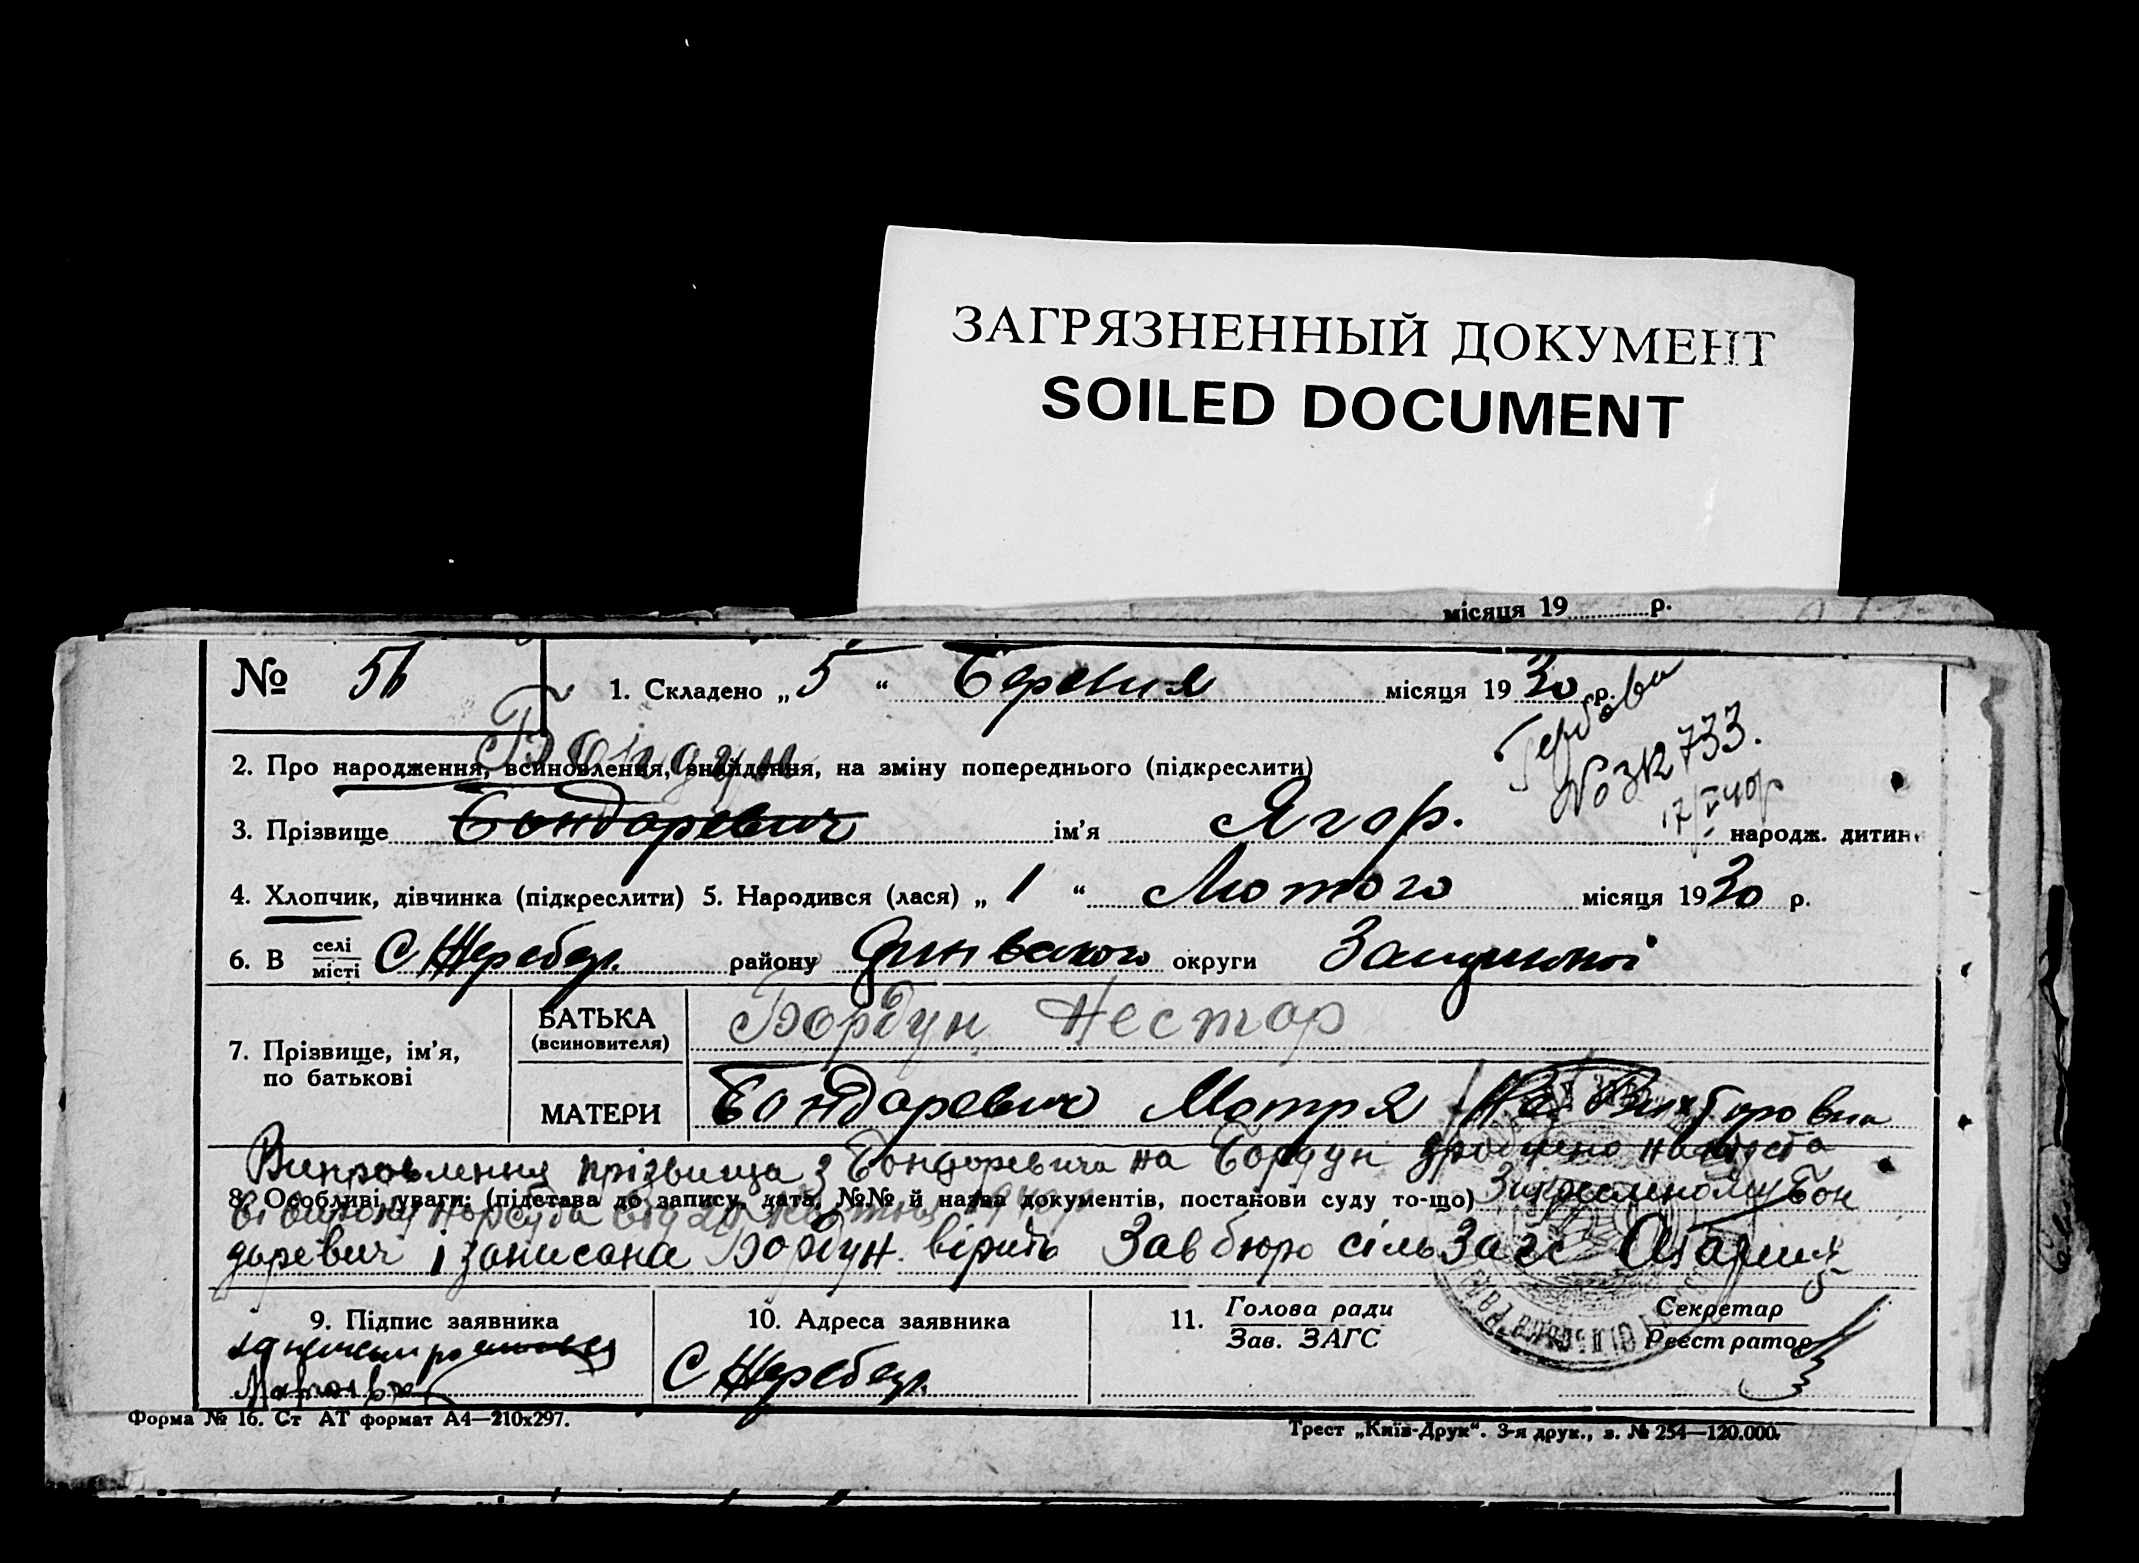 ЗАГРЯЗНЕННЫЙ ДОКУМЕНТ
SOILED DOCUMENT
місяця 19 р.
№ 56
1. Складено „ 5 “ Березня місяця 1930 р.
Гербова
№ 3к 733.
17/V 40р
Бордун
2. Про народження, всиновлення, знайдення, на зміну попереднього (підкреслити)
3. Прізвище Бондаревич ім’я Ягор. народж. дитини
4. Хлопчик, дівчинка (підкреслити) 5. Народився (лася) „ 1 “ Лютого місяця 1930 р.
6. В селі місті С Жеребец. району округи
7. Прізвище, ім’я, по батькові
БАТЬКА (всиновителя) Бордун Нестор
МАТЕРИ Бондаревич Мотря
Виправлення прізвища з Бондаревича на Бордун
8. Особливі уваги: (підстава до запису, дата, №№ й назва документів, постанови суду то-що) Закресленому Бон
даревич і записана Бордун. вірить Зав бюро сільЗагс
9. Підпис заявника
10. Адреса заявника
С Жеребец.
11. Голова ради
Зав. ЗАГС
Секретар
Реєстратор
Форма № 16. Ст АТ формат А4—210х297.
Трест „Київ-Друк“. 3-я друк., з. № 254—120.000.